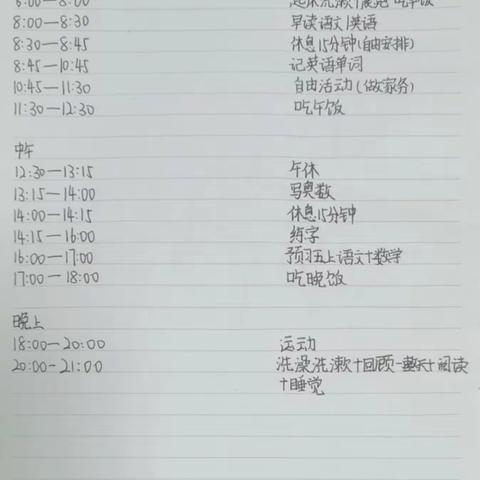 6:00—8:00 起床洗漱+晨跑+吃早饭
8:00—8:30 早读语文+英语
8:30—8:45 休息15分钟(自由安排)
8:45—10:45 记英语单词
10:45—11:30 自由活动(做家务)
11:30—12:30 吃午饭
中午
12:30—13:15 午休
13:15—14:00 写奥数
14:00—14:15 休息15分钟
14:15—16:00 练字
16:00—17:00 预习五上语文+数学
17:00—18:00 吃晚饭
晚上
18:00—20:00 运动
20:00—21:00 洗澡洗漱+回顾一整天+阅读
+睡觉